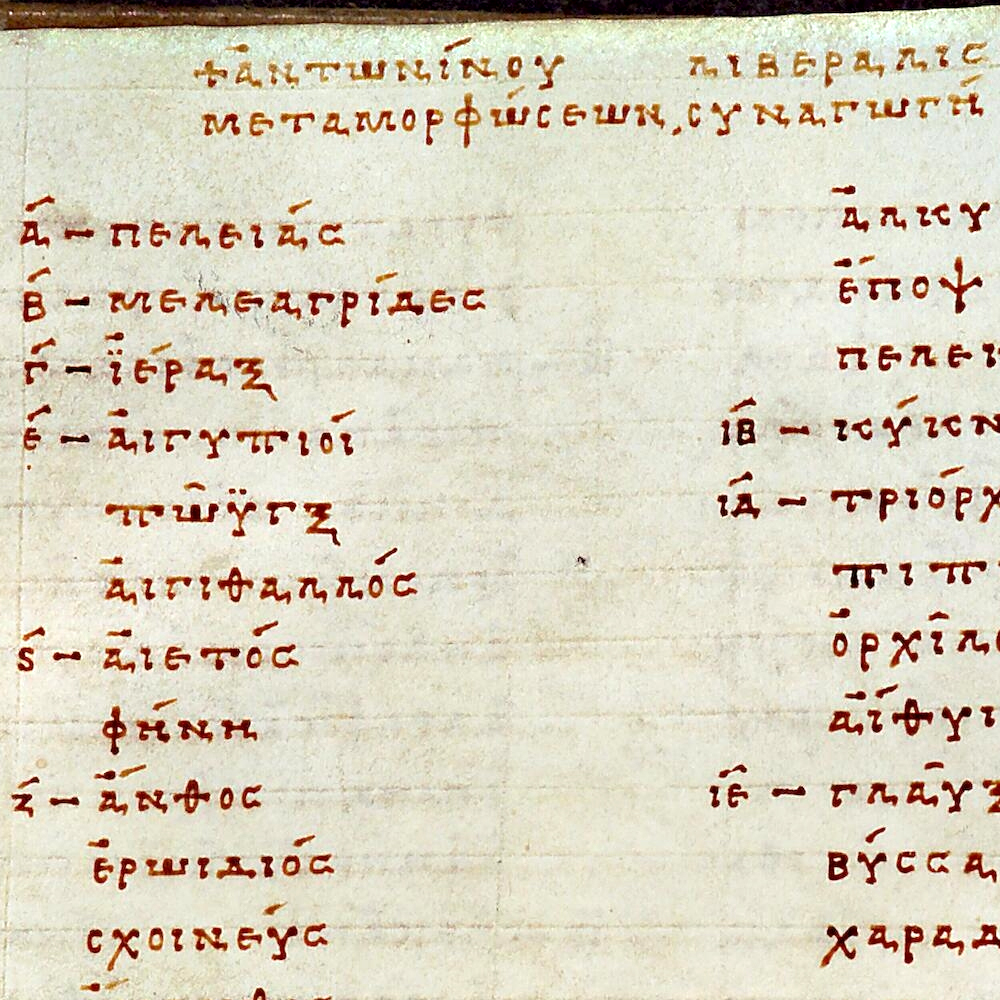 +ἀντωνίνου λιβεράλις
μεταμορφώσεων συναγωγή
ά - πελειάς
β́ - μελεαγρίδες
γ́ - ϊέραξ
έ - ἀιγυπιοί
πῶϋγξ
ἀιγιθαλλός
ϛ́ - ἀιετός
φήνη
ζ́ - ἄνθος
ἐρωιδιός
σχοινεύς
ἀλκυ
ἔποψ
πελει
ιβ́ - κύκν
ιδ́ - τριόρχ
πιπ
ὀρχῖλ
ἀίθυι
ιέ - γλαῦξ
βύσσα
χαραδ